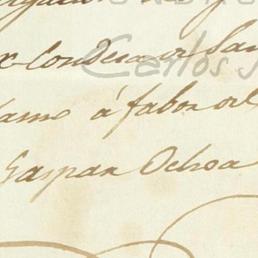 x-Condesa de San
Carlos
lamo á fabor del
Gaspar Ochoa